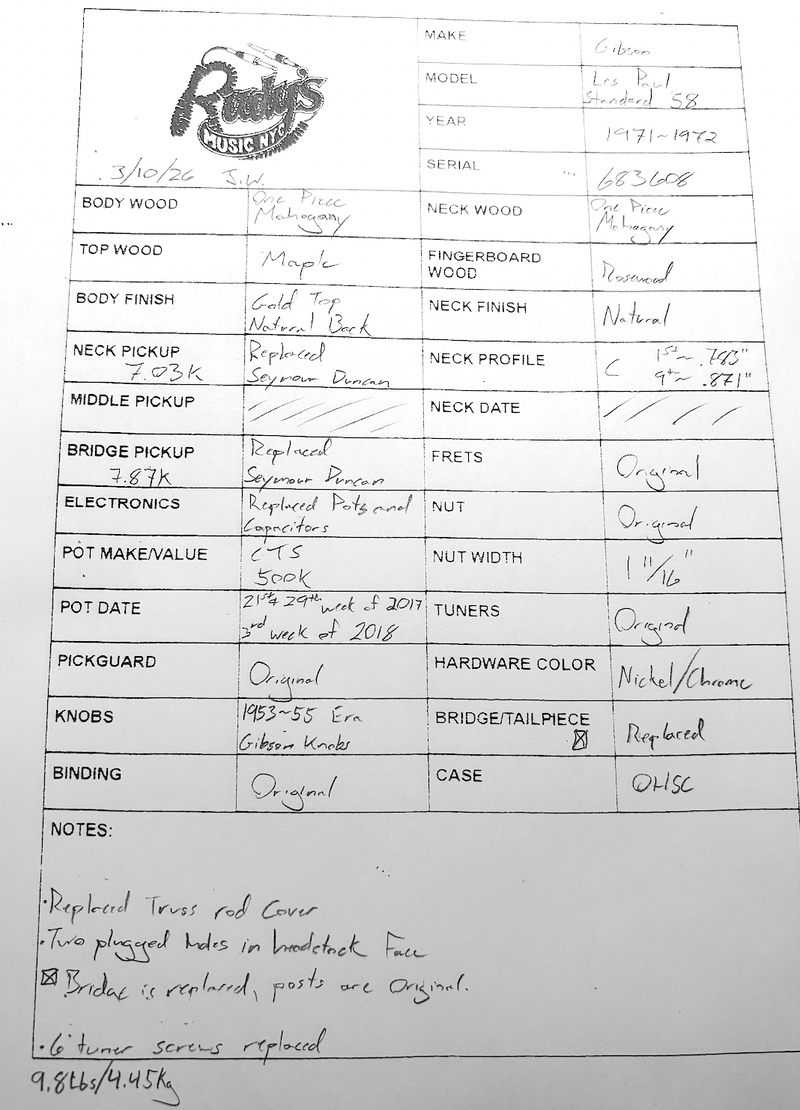 Rudy's
MUSIC NYC
3/10/26 J.W.
MAKE Gibson
MODEL Les Paul
Standard '58
YEAR 1971~1972
SERIAL 683608
BODY WOOD One Piece
Mahogany
NECK WOOD One Piece
Mahogany
TOP WOOD Maple
FINGERBOARD
WOOD Rosewood
BODY FINISH Gold Top
Natural Back
NECK FINISH Natural
NECK PICKUP Replaced
7.03K Seymour Duncan
NECK PROFILE C 1st~ .793"
9th~ .871"
MIDDLE PICKUP
NECK DATE
BRIDGE PICKUP Replaced
7.87K Seymour Duncan
FRETS Original
ELECTRONICS Replaced Pots and
Capacitors
NUT Original
POT MAKE/VALUE CTS
500K
NUT WIDTH 1 11/16"
POT DATE 21st & 29th week of 2017
3rd week of 2018
TUNERS Original
PICKGUARD Original
HARDWARE COLOR Nickel/Chrome
KNOBS 1953~55 Era
Gibson Knobs
BRIDGE/TAILPIECE Replaced
BINDING Original
CASE OHSC
NOTES:
·Replaced Truss rod Cover
·Two plugged holes in headstock Face
☒ Bridge is replaced, posts are Original.
·6 tuner screws replaced
9.8Lbs/4.45Kg